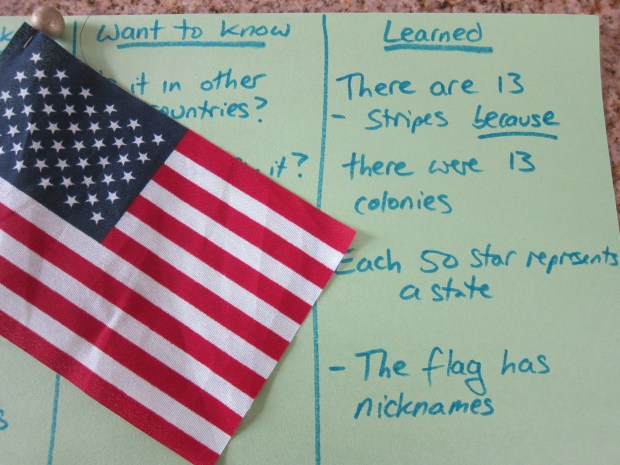 Want to know
it in other
countries?
it?
Learned
There are 13
- Stripes because
there were 13
colonies
Each 50 star represents
a state
- The flag has
nicknames